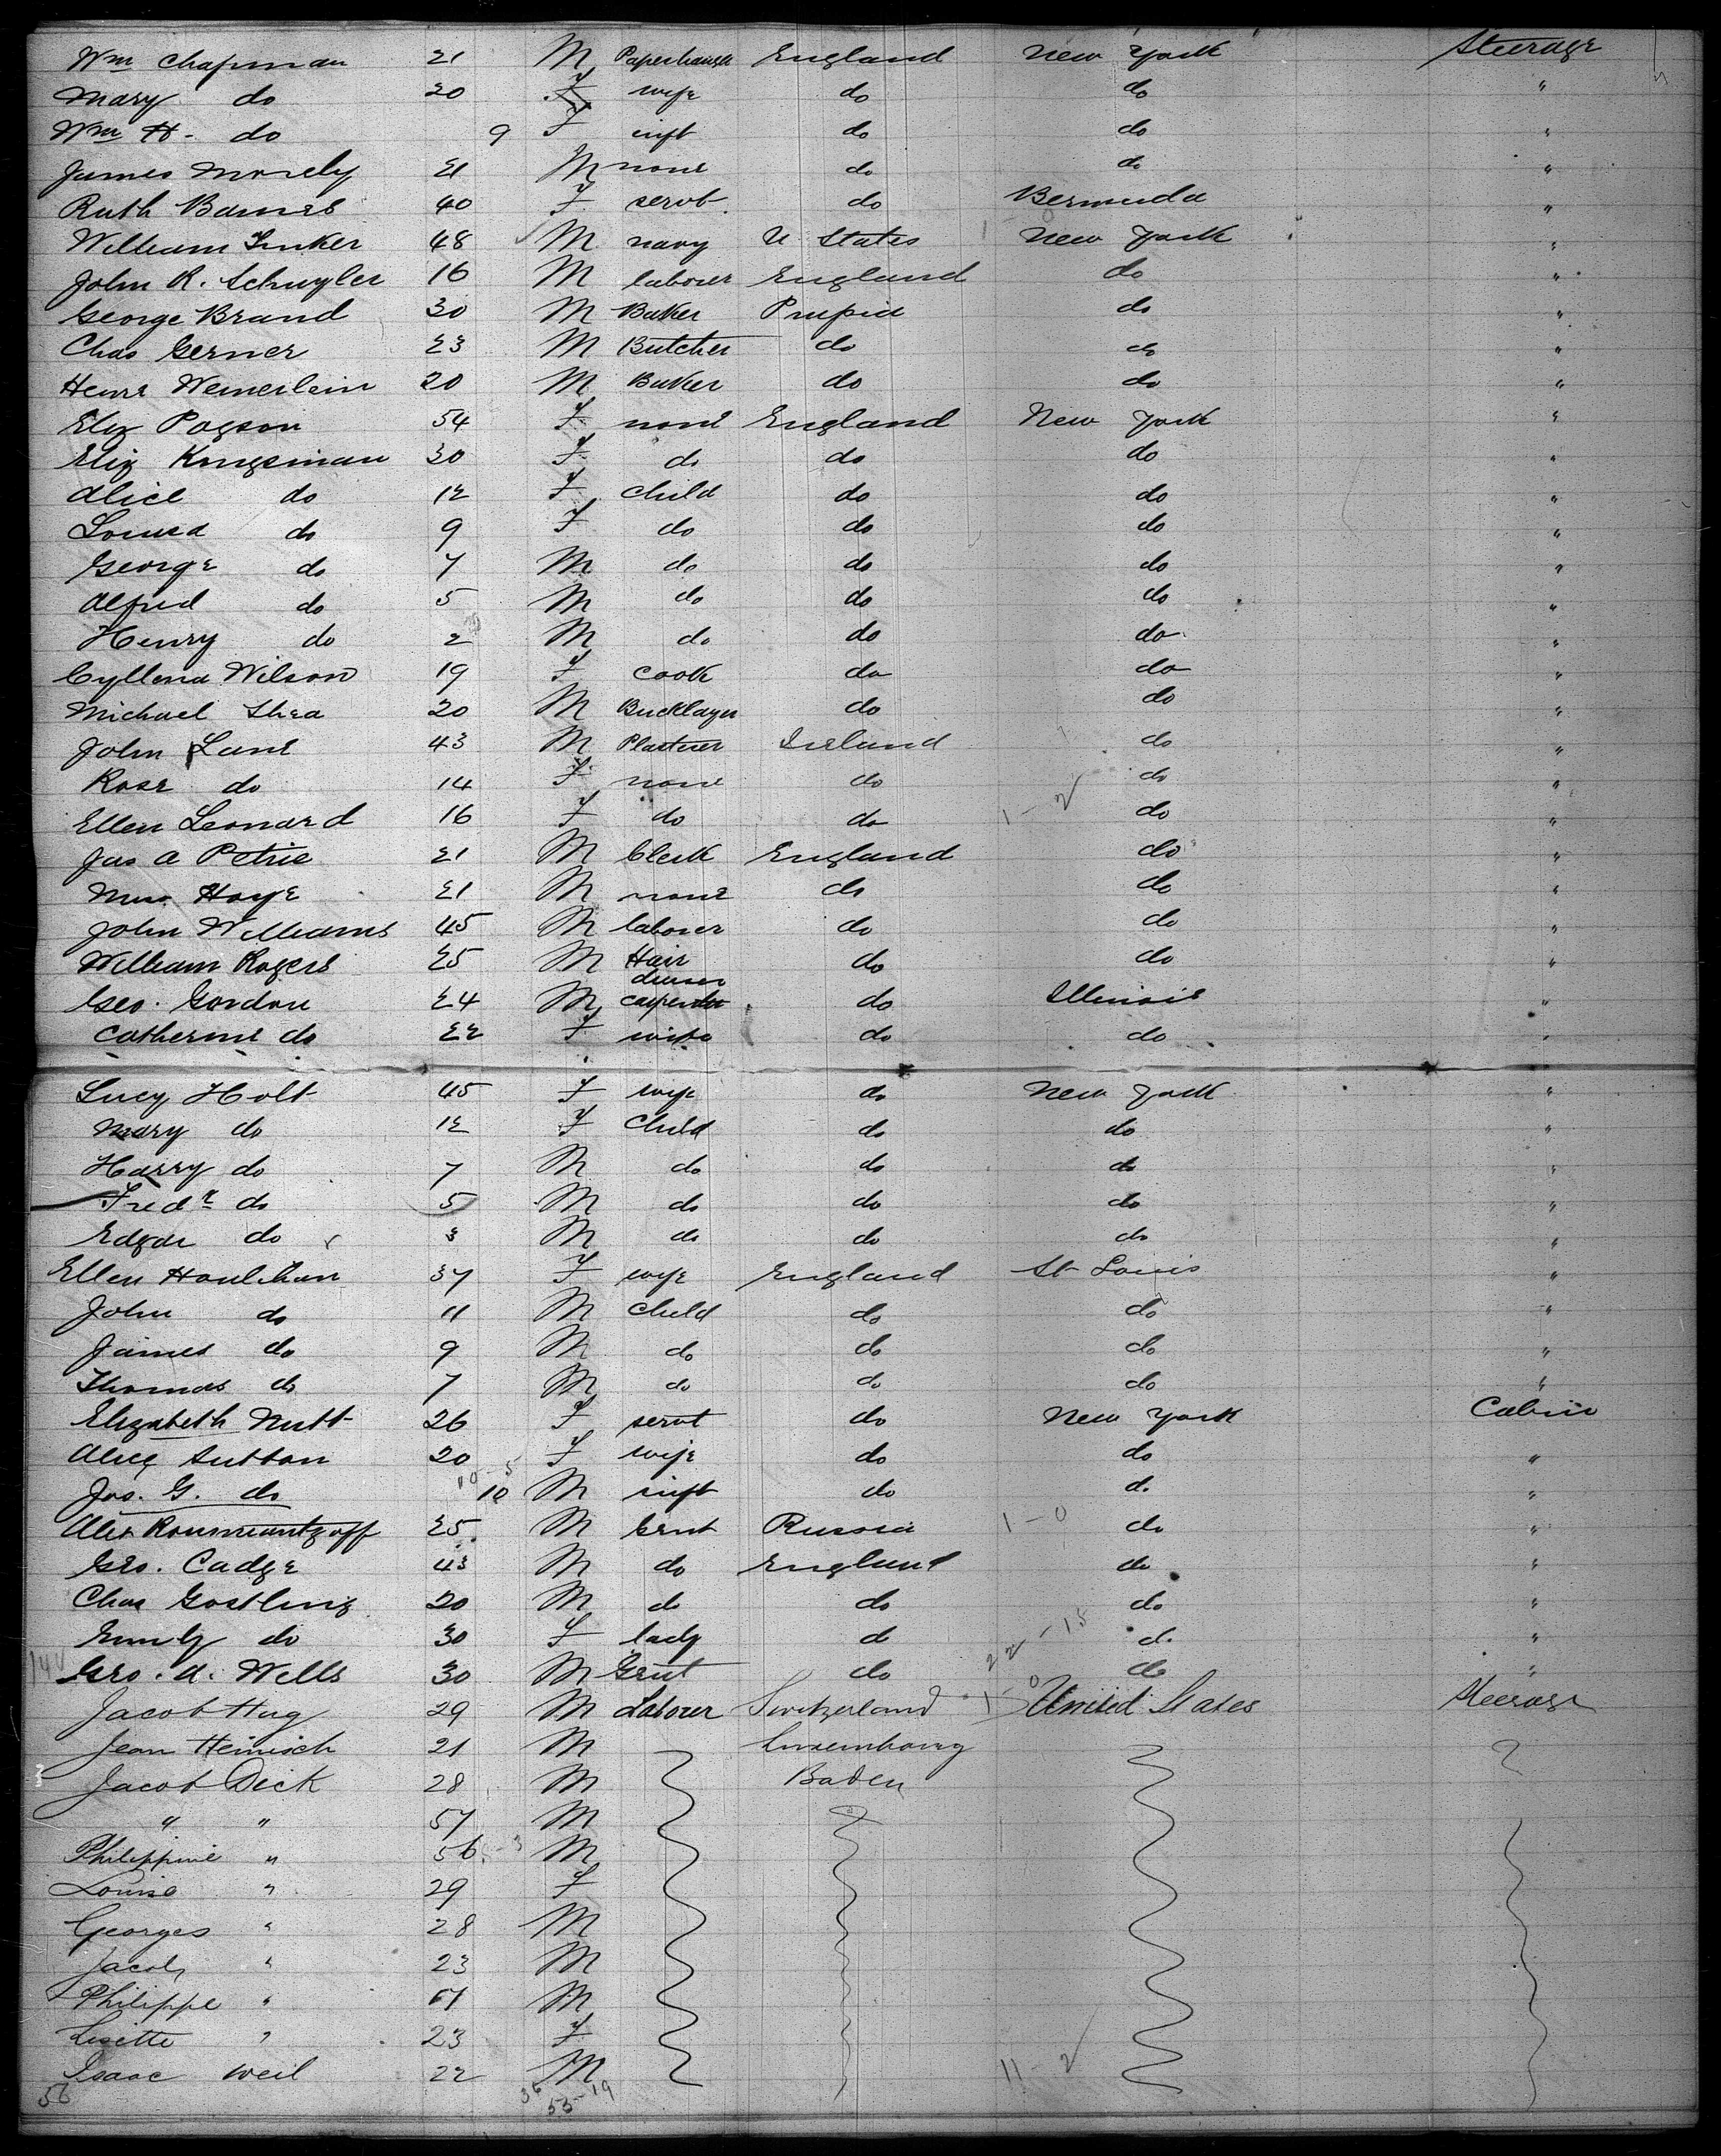 Wm Chapman 21 M Paperhanger England New York Steerage
Mary do 20 F wife do do "
Wm H. do 9 F inft do do "
James Morely 21 M none do do "
Ruth Barnes 40 F servt. do Bermuda "
William Tinker 48 M navy U States New York "
John R. Schuyler 16 M laborer England do "
George Brand 30 M Baker Prussia do "
Chas Gerner 23 M Butcher do do "
Henre Wemerlein 20 M Baker do do "
Eliz Pogson 54 F none England New York "
Eliz Kingsman 30 F do do do "
Alice do 12 F child do do "
Louisa do 9 F do do do "
George do 7 M do do do "
Alfred do 5 M do do do "
Henry do 2 M do do do "
Cyllena Wilson 19 F cook do do "
Michael Shea 20 M Bricklayer do do "
John Lane 43 M Plasterer Ireland do "
Rose do 14 F none do do "
1 - 2
Ellen Leonard 16 F do do do "
Jas A Petrie 21 M Clerk England do "
Hoye 21 M none do do "
John Williams 45 M laborer do do "
William Rogers 25 M Hair dresser do do "
Geo. Gordon 24 M carpenter do Illinois "
Catherine do 22 F wife do do "
Lucy Holt 45 F wife do New York "
Mary do 12 F Child do do "
Harry do 7 M do do do "
Fredk do 5 M do do do "
Edgar do 3 M do do do "
Ellen Houlihan 37 F wife England St Louis "
John do 11 M Child do do "
James do 9 M do do do "
Thomas do 7 M do do do "
Elizabeth Nutt 26 F servt do New York Cabin
Alice Sutton 20 F wife do do "
10 - 5
Jos. G. do 10 M inft do do "
Alex Roumiantzoff 25 M Gent Russia 1 - 0 do "
Geo. Cadge 43 M do England do "
Chas Gostling 20 M do do do "
Emily do 30 F lady do do "
22 - 15
Geo. A. Wells 30 M Gent do do "
Jacob Hug 29 M Laborer Switzerland 1 - 0 United States Steerage
Jean Heinisch 21 M Luxembourg
Jacob Dick 28 M Baden
" " 57 M
Philippine " 56 M
Louise " 29 F
Georges " 28 M
Jacob " 23 M
Philippe " M
Lisette " 23 F
Isaac Weil 22 M 11 - 2
56 36 53 - 19